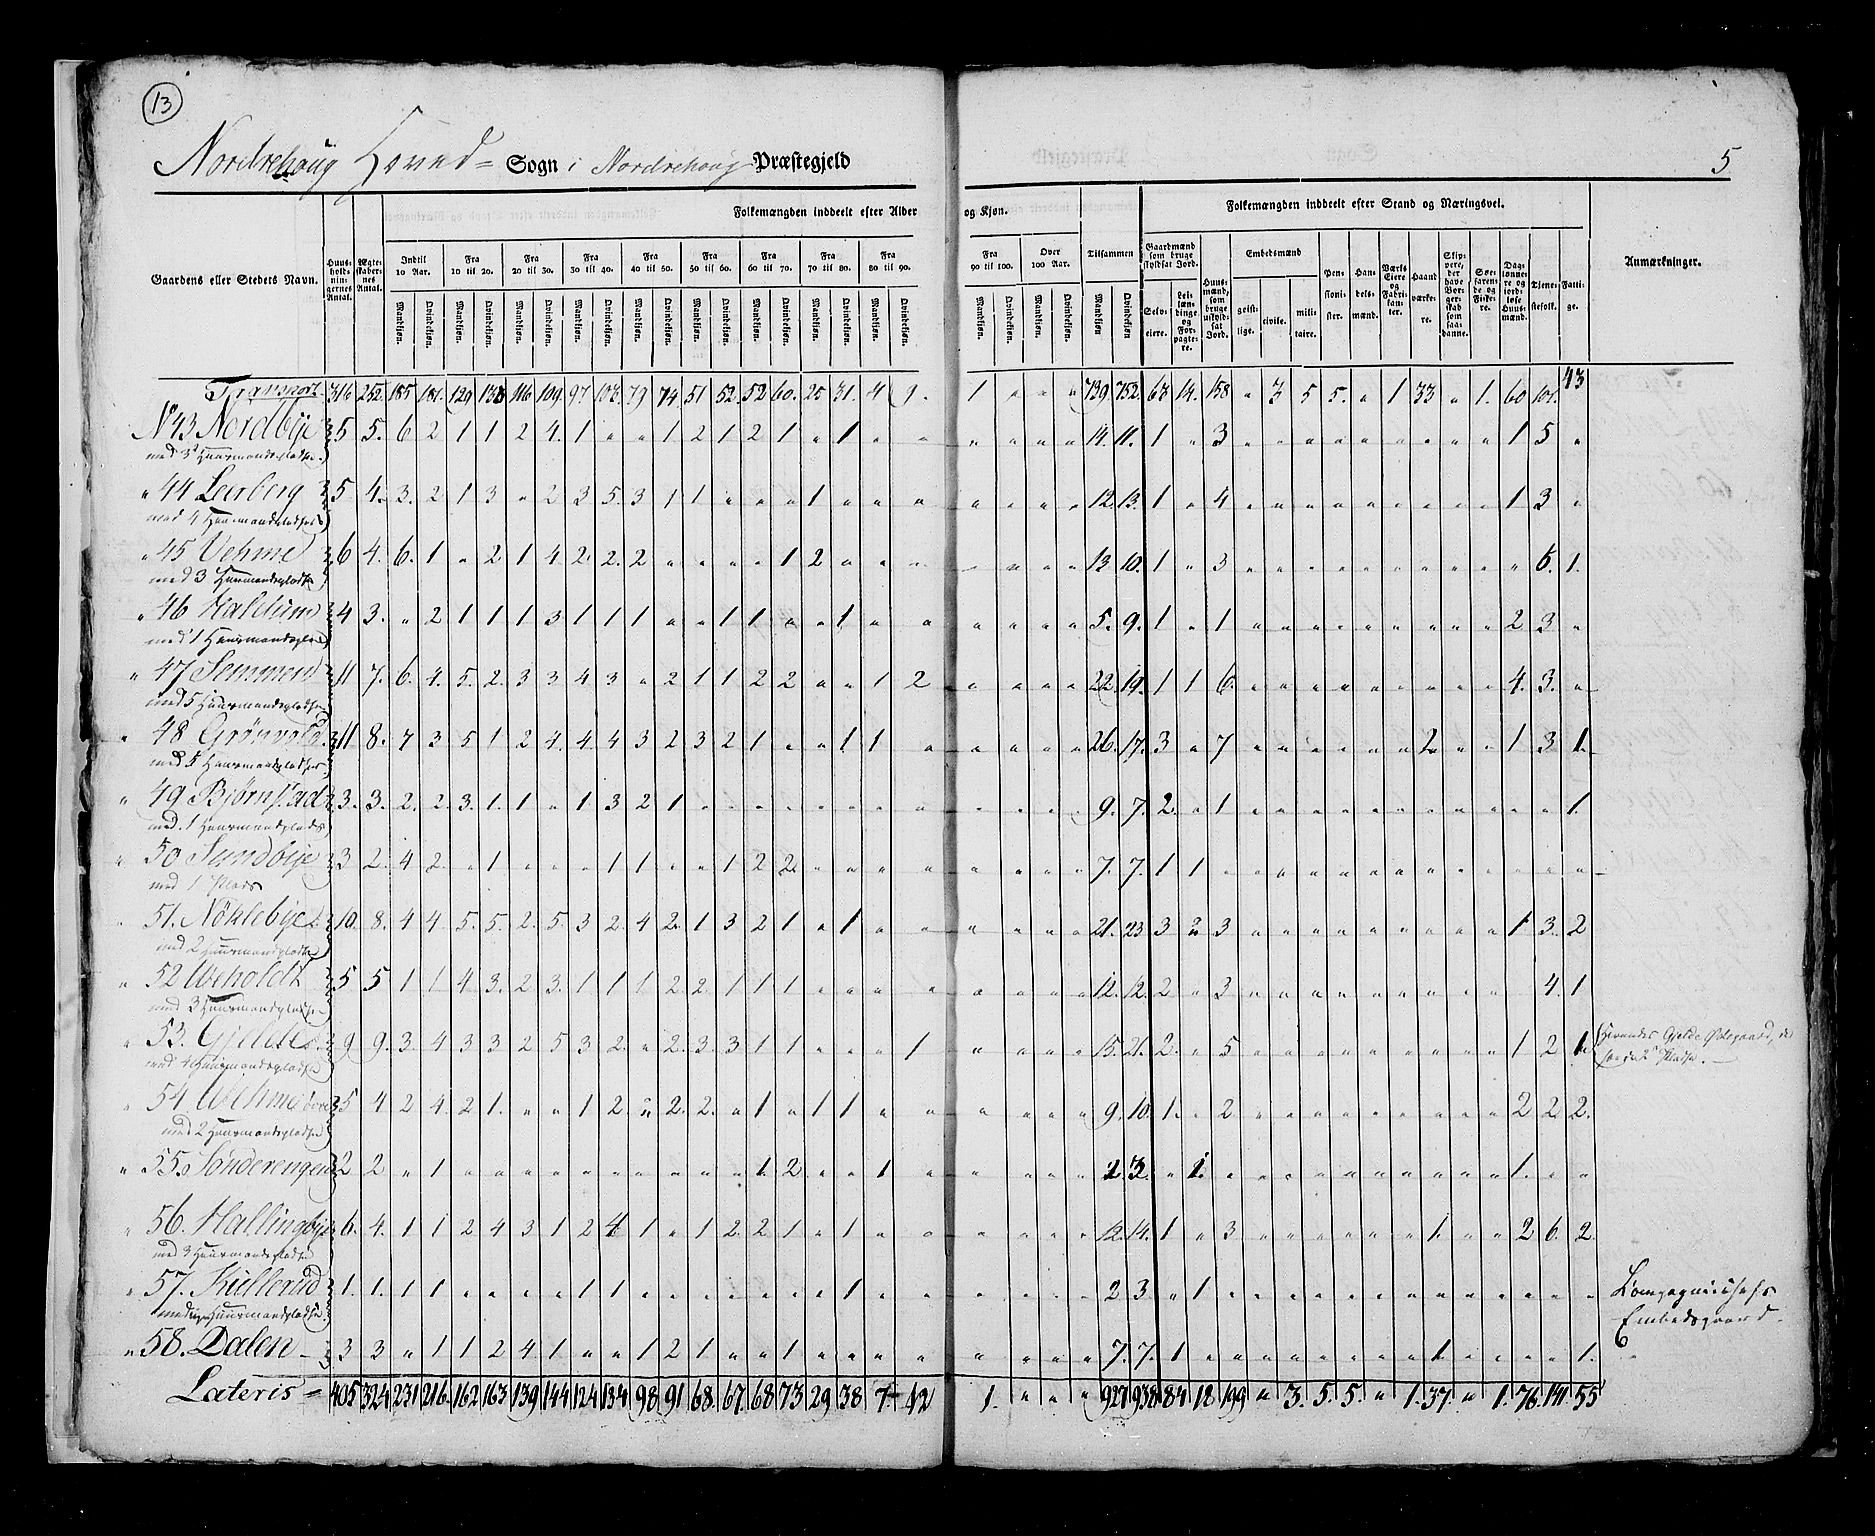 13
Nordrehoug Hoved= Sogn i Nordrehoug Præstegjeld
5
Folkemængden inddeelt efter Alder og Kjøn.
Folkemængden inddeelt efter Stand og Næringsvei.
Gaardens eller Stedets Navn. Huus-holdnin-gernes Antal. Ægte-skaber-nes Antal. Indtil 10 Aar. Fra 10 til 20. Fra 20 til 30. Fra 30 til 40. Fra 40 til 50. Fra 50 til 60. Fra 60 til 70. Fra 70 til 80. Fra 80 til 90. Fra 90 til 100. Over 100 Aar. Tilsammen Gaardmænd som bruge skyldsat Jord. Huus-mænd, som bruge uskyld-sat Jord. Embedsmænd Pen-sioni-ster. Han-dels-mænd. Værks Eiere og Fabri-kan-ter. Haand værke-re. Skip-pere, der have Bor-ger-skab som saa-danne. Søe-farende og Fiske-re. Dag-lønne-re og jord-løse Huus-mænd. Tjene-stefolk. Fatti-ge. Anmærkninger.
Mandkjøn. Qvindekjøn. Mandkjøn. Qvindekjøn. Mandkjøn. Qvindekjøn. Mandkjøn. Qvindekjøn. Mandkjøn. Qvindekjøn. Mandkjøn. Qvindekjøn. Mandkjøn. Qvindekjøn. Mandkjøn. Qvindekjøn. Mandkjøn. Qvindekjøn. Mandkjøn. Qvindekjøn. Mandkjøn. Qvindekjøn. Mandkjøn Qvindekjøn. Selv-eiere. Lei-lændinge og For-pagte-re. geist-lige. civile. mili-taire.
Transport 316 252 185 181 129 138 116 109 97 103 79 74 51 52 52 60 25 31 4 9 1 " " " 739 752 63 14 158 " 3 5 5 " 1 33 " 1 60 101 43
No 43 Nordbye 5 5 6 2 1 1 2 4 1 " " 1 2 1 2 1 " 1 " " " " " " 14 11 1 " 3 " " " " " " " " " 1 5 "
med 3 Huusmandspladse
" 44 Lerberg 5 4 3 2 1 3 " 2 3 5 3 1 1 " " " 1 " " " " " " " 12 13 1 " 4 " " " " " " " " " 1 3 "
med 4 Huusmandspladse
" 45 Vehme 6 4 6 1 " 2 1 4 2 2 2 " " " " 1 2 " " " " " " " 13 10 1 " 3 " " " " " " " " " " 6 1
med 3 Huusmandspladse
" 46 Haldum 4 3 " 2 1 1 1 3 1 1 1 " " 1 1 " " 1 " " " " " " 5 9 1 " 1 " " " " " " " " " 2 3 "
med 1 Huusmandsplads
" 47 Semmen 11 7 6 4 5 2 3 3 4 3 " 2 1 1 2 2 " " 1 2 " " " " 22 19 1 1 6 " " " " " " " " " 4 3 "
med 5 Huusmandspladse
" 48 Grønvold 11 8 7 3 5 1 2 4 4 4 3 2 3 2 1 " " 1 1 " " " " " 26 17 3 " 7 " " " " " " 2 " " 1 3 1
med 5 Huusmandspladse
" 49 Bjørnstad 3 3 2 2 3 1 1 " 1 3 2 1 " " " " " " " " " " " " 9 7 2 " 1 " " " " " " " " " " " 1
med 1 Huusmandsplads
" 50 Sundbye 3 2 4 2 " 1 " " " 1 1 " " 1 2 2 " " " " " " " " 7 7 1 1 " " " " " " " " " " " " "
med 1 Plads
51. Nøklebye 10 8 4 4 5 5 2 5 3 2 4 2 1 3 2 1 " 1 " " " " " " 21 23 3 " 3 " " " " " " " " " 1 3 2
med 2 Huusmandspladse
" 52 Veholdt 5 5 1 1 4 3 2 3 1 1 1 2 2 1 1 1 " " " " " " " " 12 12 2 " 3 " " " " " " " " " " 4 1
med 3 Huusmandspladse
" 53. Gjelde 9 9 3 4 3 3 2 5 3 2 " 2 3 3 1 1 " " " 1 " " " " 15 21 2 " 5 " " " " " " " " " 1 2 1
med 4 Huusmandspladse
" 54 Vehme 5 4 2 4 2 1 " " 1 2 " 2 2 " 1 " 1 1 " " " " " " 9 10 1 " 2 " " " " " " " " " 2 2 2
med 2 Huusmandspladse
" 55. Sønderengen 2 2 " 1 " " " " " " " " " " 1 2 " " 1 " " " " " 2 3 " 1 " " " " " " " " " " 1 " "
" 56. Hallingbye 6 4 1 1 2 4 3 1 2 4 1 " 1 2 2 1 " 1 " " " " " " 12 14 1 " 3 " " " " " " 1 " " 2 6 2
med 3 Huusmandspladse
" 57. Kullerud 1 1 1 1 " " " " 1 1 " " " " " " " 1 " " " " " " 2 3 " 1 " " " " " " " " " " " " "
Embedsgaard
" 58. Dalen 3 3 " 1 1 2 4 1 " " 1 2 1 " " 1 " " " " " " " " 7 7 1 " " " " " " " " 1 " " " " 1
Lateris = 405 324 231 216 162 163 139 144 124 134 98 91 68 67 68 73 29 38 7 12 1 " " " 927 938 84 18 199 " 3 5 5 " 1 37 " 1 76 141 55